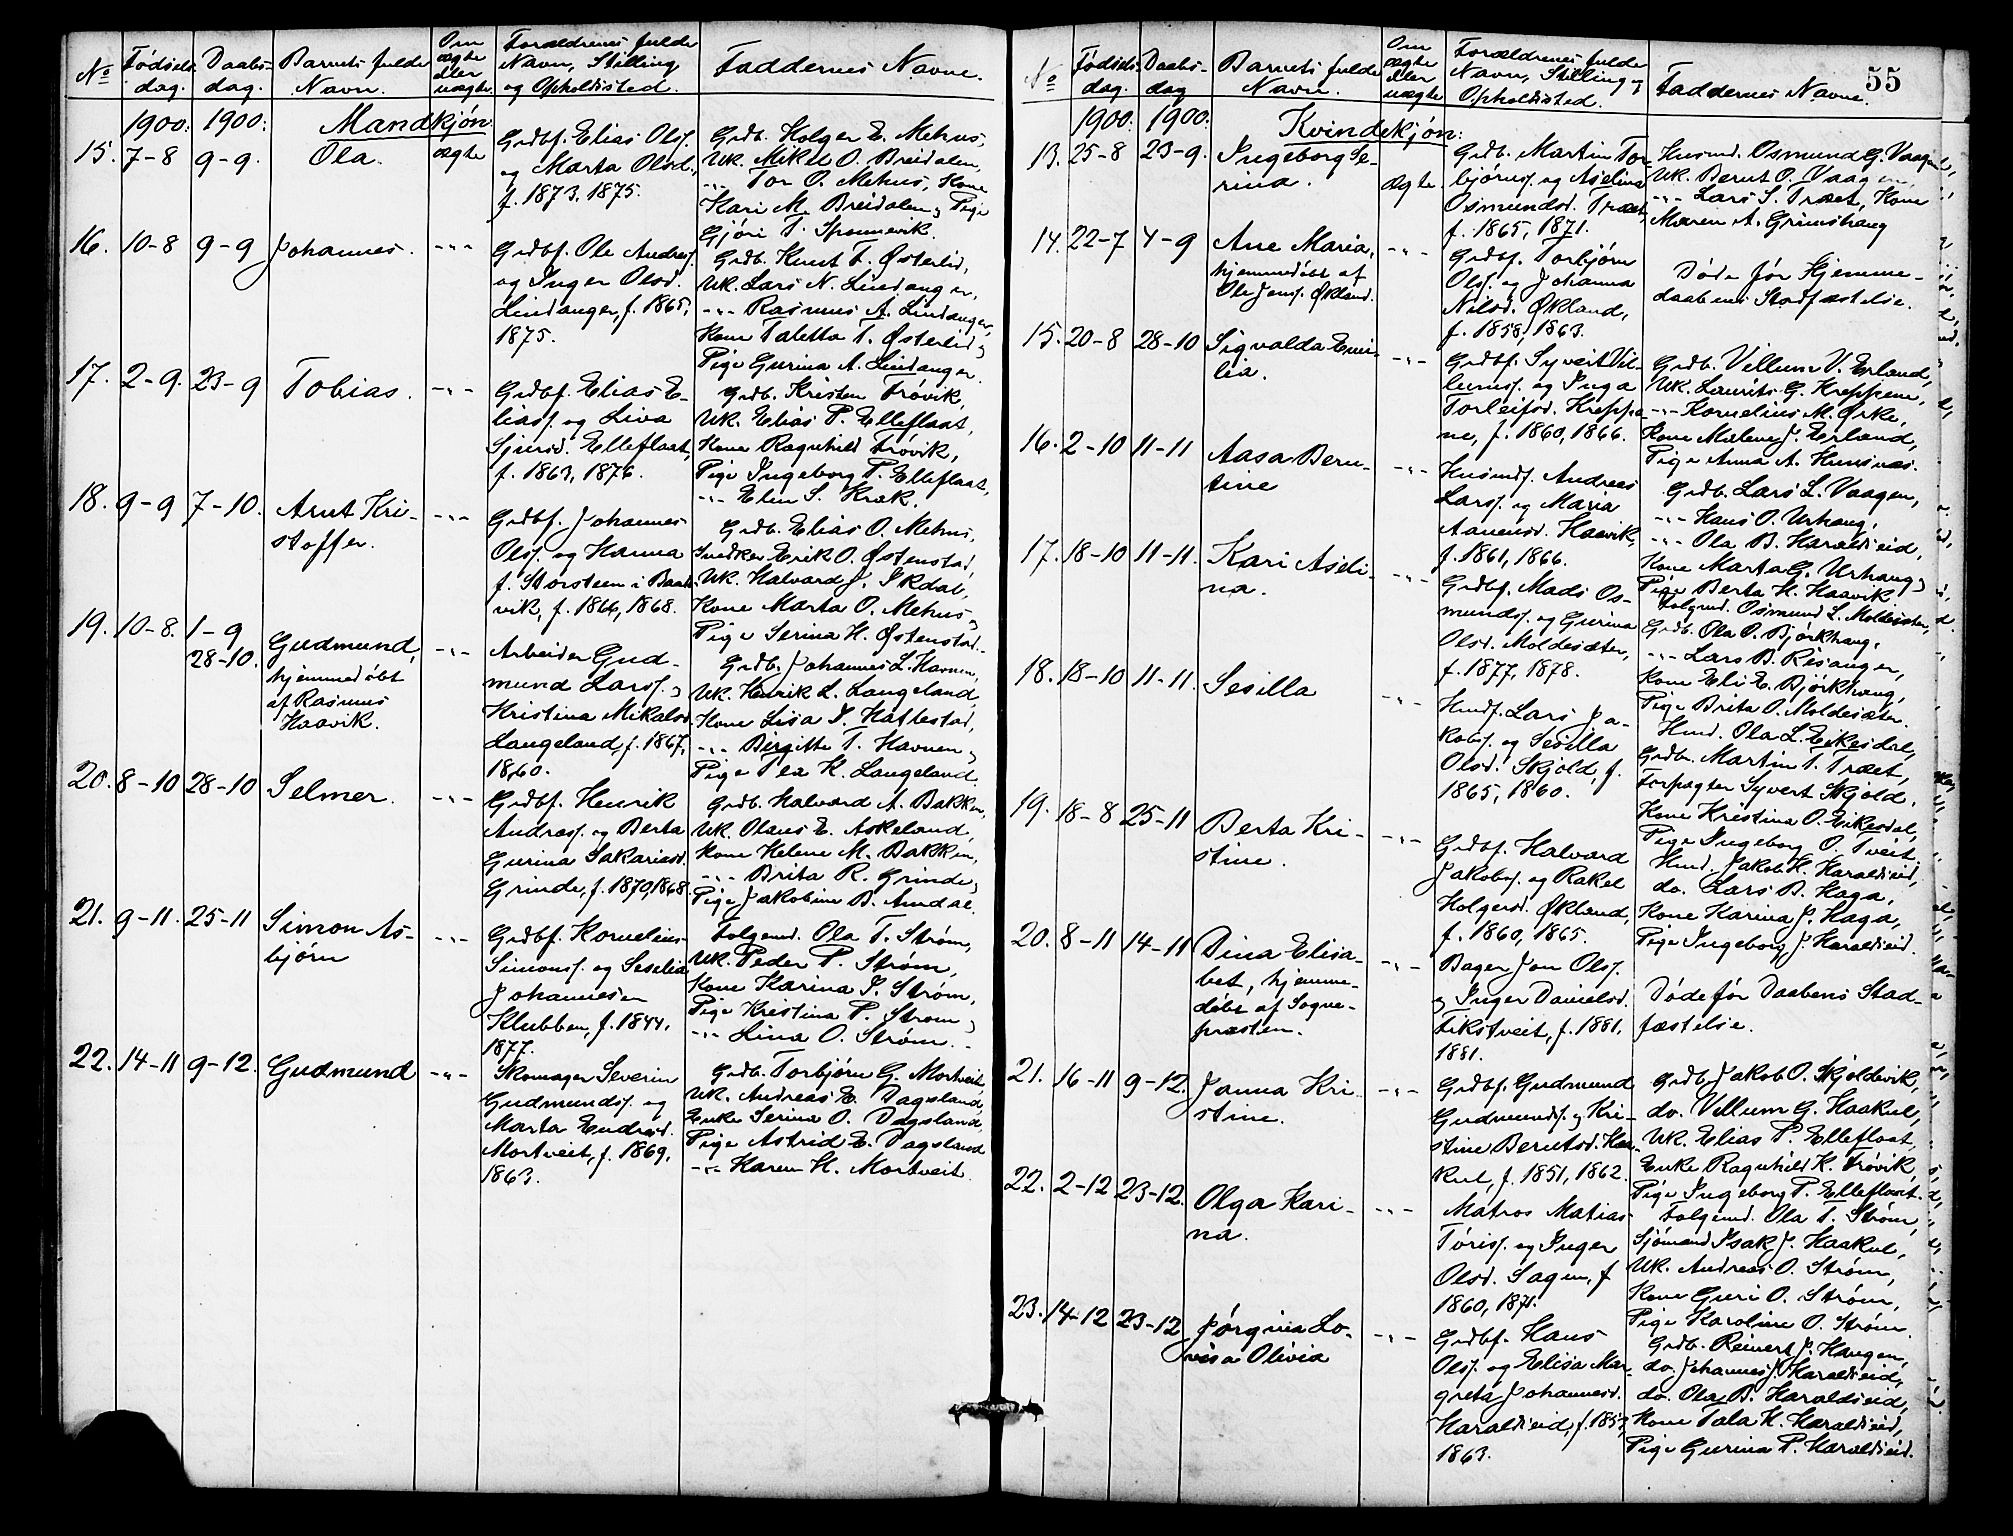 No
Fødsels-
dag.
Daabs-
dag.
Barnets fulde
Navn.
Om
ægte
eller
uægte
Forældrenes fulde
Navn, Stilling
og Opholdssted.
Faddernes Navne.
1900. 1900.
Mandkjøn
15. 7-8 9-9. Ola. ægte
Grdbf. Elias Ols.
og Marta Olsd.
f. 1873, 1875.
Grdb. Holger E. Mehus,
Uk. Mikal O. Breidalen,
-"- Tor O. Mehus, Kone
Kari M. Breidalen, Pige
Gjøri T. Sponnevik.
16. 10-8 9-9 Johannes. -"-
Grdbf. Ole Andreas.
og Inger Olsd.
Lindanger, f. 1865,
1875.
Grdb. Knut T. Østerlid,
Uk. Lars N. Lindanger,
-"- Rasmus A. Lindanger,
Kone Taletta T. Østerlid,
Pige Gurina A. Lindanger.
17. 2-9. 23-9 Tobias. -"-
Grdbf. Elias E-
liass. og Liva
Sjursd. Elleflaat,
f. 1863, 1876.
Grdb. Kristen Frøvik,
Uk. Elias P. Elleflaat,
Kone Ragnhild Frøvik,
Pige Ingeborg P. Elleflaat,
-"- Elen S. Krak.
18. 9-9 7-10. Arnt Kri-
stoffer. -"-
Grdbf. Johannes
Ols. og Hanna
f. Storsteen i Baats-
vik, f. 1866, 1868.
Grdb. Elias O. Mehus,
Snedker Erik O. Østenstad,
Uk. Halvard J. Ikdal,
Kone Marta O. Mehus,
Pige Serina H. Østenstad.
19. 10-8. 1-9
28-10. Gudmund,
hjemmedøbt
af Rasmus
Haavik. -"-
Arbeider Gud-
mund Larss. &
Kristina Mikalsd.
Langeland, f. 1867,
1860.
Grdb. Johannes L. Havnen,
Uk. Henrik L. Langeland,
Kone Lisa I. Hattestad,
-"- Birgitte T. Havnen,
Pige Tea K. Langeland.
20. 8-10 28-10 Selmer. -"-
Grdbf. Henrik
Andreass. og Berta
Gurina Sakariasd.
Grinde, f. 1870, 1868.
Grdb. Halvard A. Bakken,
Uk. Olaus E. Askeland,
Kone Helene M. Bakken,
-"- Brita R. Grinde,
Pige Jakobine B. Amdal.
21. 9-11. 25-11 Simon As-
bjørn -"-
Grdbf. Kornelius
Simons. og Seselia
Johannesen
Klubben, f. 1844,
1877.
Folgemd. Ola T. Strøm,
Uk. Peder P. Strøm,
Kone Karina I. Strøm,
Pige Kristina P. Strøm,
-"- Lina O. Strøm.
22. 14-11 9-12. Gudmund -"-
Skomager Severin
Gudmunds. og
Marta Endresd.
Mortveit, f. 1869,
1863.
Grdb. Torbjørn G. Mortveit,
Uk. Andreas E. Dagsland,
Enke Serina O. Dagsland,
Pige Astrid E. Dagsland
-"- Karen H. Mortveit.
55
No
Fødsels-
dag.
Daabs-
dag
Barnets fulde
Navn.
Om
ægte
eller
uægte
Forældrenes fulde
Navn, Stilling &
Opholdssted.
Faddernes Navne.
1900. 1900.
Kvindekjøn:
13. 25-8 23-9. Ingeborg Se-
rina. Ægte.
Grdb. Martin Tor-
bjørns. og Aselina
Osmundsd. Træet,
f. 1865, 1871.
Husmd. Osmund G. Vaagen,
Uk. Bernt O. Vaagen,
-"- Lars S. Træet, Kone
Maren A. Grimshaug
14. 22-7 4-9 Ane Maria,
hjemmedøbt af
Ole Jens. Økland. -"-
Grdbf. Torbjørn
Ols. og Johanna
Nilsd. Økland,
f. 1858, 1863.
Døde før Hjemme-
daabens Stadfæstelse.
15. 20-8 28-10 Sigvalda Emi-
lia. -"-
Grdbf. Syvert Vil-
lums. og Inga
Torleifsd. Kreppe-
ne, f. 1860, 1866.
Grdb. Villum V. Erland,
Uk. Laurits G. Kreppene,
-"- Kornelius M. Ørke,
Kone Malene J. Erland,
Pige Anna A. Humsnæs.
16. 2-10 11-11 Aasa Bern-
tine -"-
Husmdf. Andreas
Larss. og Maria
Aanensd. Haavik,
f. 1861, 1866.
Grdb. Lars L. Vaagen,
-"- Hans O. Urhaug,
-"- Ola B. Haraldseid,
Kone Marta G. Urhaug,
Pige Berta H. Haavik
17. 18-10 11-11. Kari Aseli-
na. -"-
Grdbf. Mads Os-
munds. og Gurina
Olsd. Moldesæter,
f. 1877, 1878.
Folgmd. Osmund L. Moldesæter,
Grdb. Ola O. Bjørkhaug,
-"- Lars B. Risanger,
Kone Eli E. Bjørkhaug,
Pige Brita O. Moldesæter.
18. 18-10 11-11. Sesilla -"-
Hmdf. Lars Ja-
kobs. og Sesilla
Olsd. Skjold, f.
1865, 1860.
Hmd. Ola L. Eikesdal,
Grdbr. Martin T. Træet,
Forpagter Syvert Skjold,
Kone Kristina O. Eikesdal,
Pige Ingeborg O. Tveit.
19. 18-8 25-11 Berta Kri-
stine. -"-
Grdbf. Halvard
Jakobs. og Rakel
Holgersd. Økland,
f. 1860, 1865.
Hmd. Jakob H. Haraldseid,
do. Lars B. Haga,
Kone Karina J. Haga,
Pige Ingeborg J. Haraldseid.
20. 8-11 14-11 Dina Elisa-
bet, hjemme-
døbt af Sogne-
præsten. -"-
Bager Jon Ols.
& Inger Danielsd.
Fikstveit, f. 1881,
1881.
Døde før Daabens Stad-
fæstelse.
21. 16-11 9-12. Janna Kri-
stine. -"-
Grdbf. Gudmund
Gudmunds. & Kri-
stine Berntsd. Haa-
kul, f. 1851, 1862.
Grdb. Jakob O. Skjoldevik,
do. Villum G. Haakul,
Uk. Elias P. Elleflaat,
Enke Ragnhild K. Frøvik,
Pige Ingeborg P. Elleflaat.
22. 2-12 23-12. Olga Kari-
na. -"-
Matros Matias
Tøriss. og Inger
Olsd. Sagen, f.
1860, 1871.
Folgemd. Ola T. Strøm,
Sjømand Isak J. Haakul,
Uk. Andreas O. Strøm,
Kone Guri O. Strøm,
Pige Karoline O. Strøm.
23. 14-12 23-12 Jørgina Lo-
visa Olivia -"-
Grdbf. Hans
Ols. og Elisa Mar-
greta Johannesd.
Haraldseid, f. 1857,
1863.
Grdb. Reinert J. Haugen,
do. Johannes J. Haraldseid,
do. Ola B. Haraldseid,
Kone Tala K. Haraldseid,
Pige Gurina P. Haraldseid.